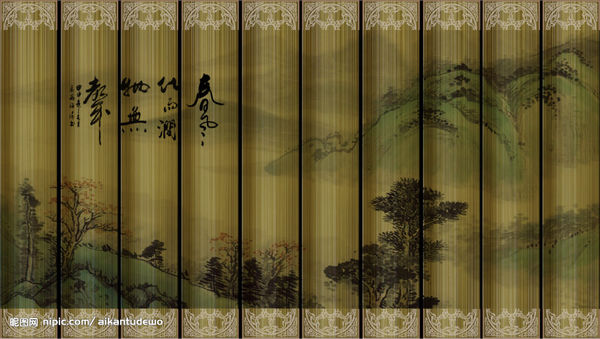 春風
化雨潤
物無
聲
昵图网 nipic.com/ aikantudewo